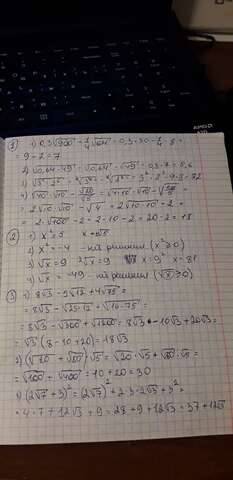 1) 1) 0,3√900 - 1/4 √64 = 0,3·30 - 1/4 · 8 =
= 9 - 2 = 7
2) √0,64·49 = √0,64 · √49 = 0,8·7 = 5,6
= 2√10·√10 - √4 = 2√10·10 - 2 =
= 2·√100 - 2 = 2·10 - 2 = 20 - 2 = 18
2) 1) x² = 5 x = ±√5
2) x² = -4 - нет решения (x² ≥ 0)
3) √x = 9 x = 9² x = 81
4) √x = -49 - нет решения (√x ≥ 0)
3) 1) 8√3 - 5√12 + 4√75 =
= 8√3 - √300 + √1200 = 8√3 - 10√3 + 20√3 =
= √3 (8 - 10 + 20) = 18√3
2) (√20 + √80) √5 = √20·√5 + √80·√5 =
= √100 + √400 = 10 + 20 = 30
3) (2√7 + 3)² = (2√7)² + 2·3·2√3 + 3² =
= 4·7 + 12√3 + 9 = 28 + 9 + 12√3 = 37 + 12√3